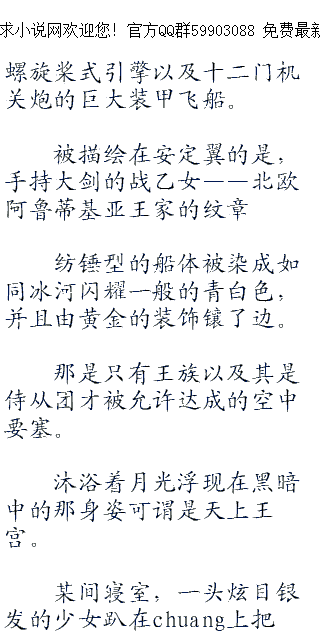 求小说网欢迎您！官方QQ群59903088 免费最新
螺旋桨式引擎以及十二门机
关炮的巨大装甲飞船。
被描绘在安定翼的是，
手持大剑的战乙女——北欧
阿鲁蒂基亚王家的纹章
纺锤型的船体被染成如
同冰河闪耀一般的青白色，
并且由黄金的装饰镶了边。
那是只有王族以及其是
侍从团才被允许达成的空中
要塞。
沐浴着月光浮现在黑暗
中的那身姿可谓是天上王
宫。
某间寝室，一头炫目银
发的少女趴在chuang上把